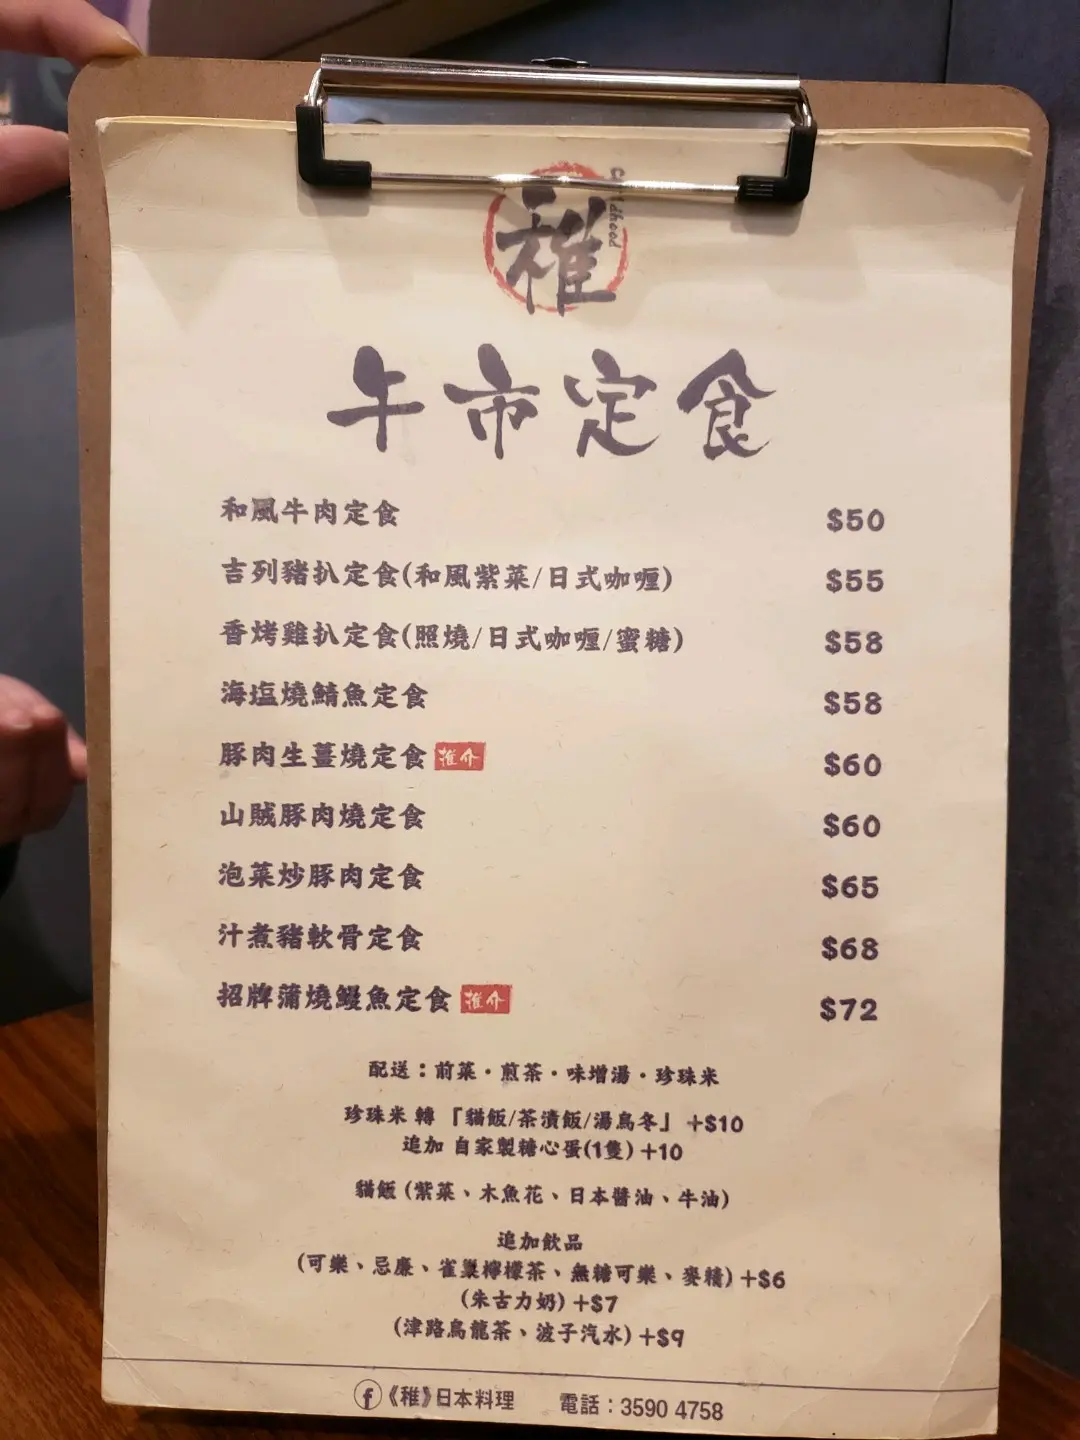 稚
Childhood
午市定食
和風牛肉定食 $50
吉列豬扒定食(和風紫菜/日式咖喱) $55
香烤雞扒定食(照燒/日式咖喱/蜜糖) $58
海塩燒鯖魚定食 $58
豚肉生薑燒定食 推介 $60
山賊豚肉燒定食 $60
泡菜炒豚肉定食 $65
汁煮豬軟骨定食 $68
招牌蒲燒鰻魚定食 推介 $72
配送：前菜・煎茶・味增湯・珍珠米
珍珠米 轉 「貓飯/茶漬飯/湯烏冬」 +$10
追加 自家製糖心蛋(1隻) +10
貓飯 (紫菜、木魚花、日本醬油、牛油)
追加飲品
(可樂、忌廉、雀巢檸檬茶、無糖可樂、麥精) +$6
(朱古力奶) +$7
(津路烏龍茶、波子汽水) +$9
f 《稚》日本料理 電話：3590 4758